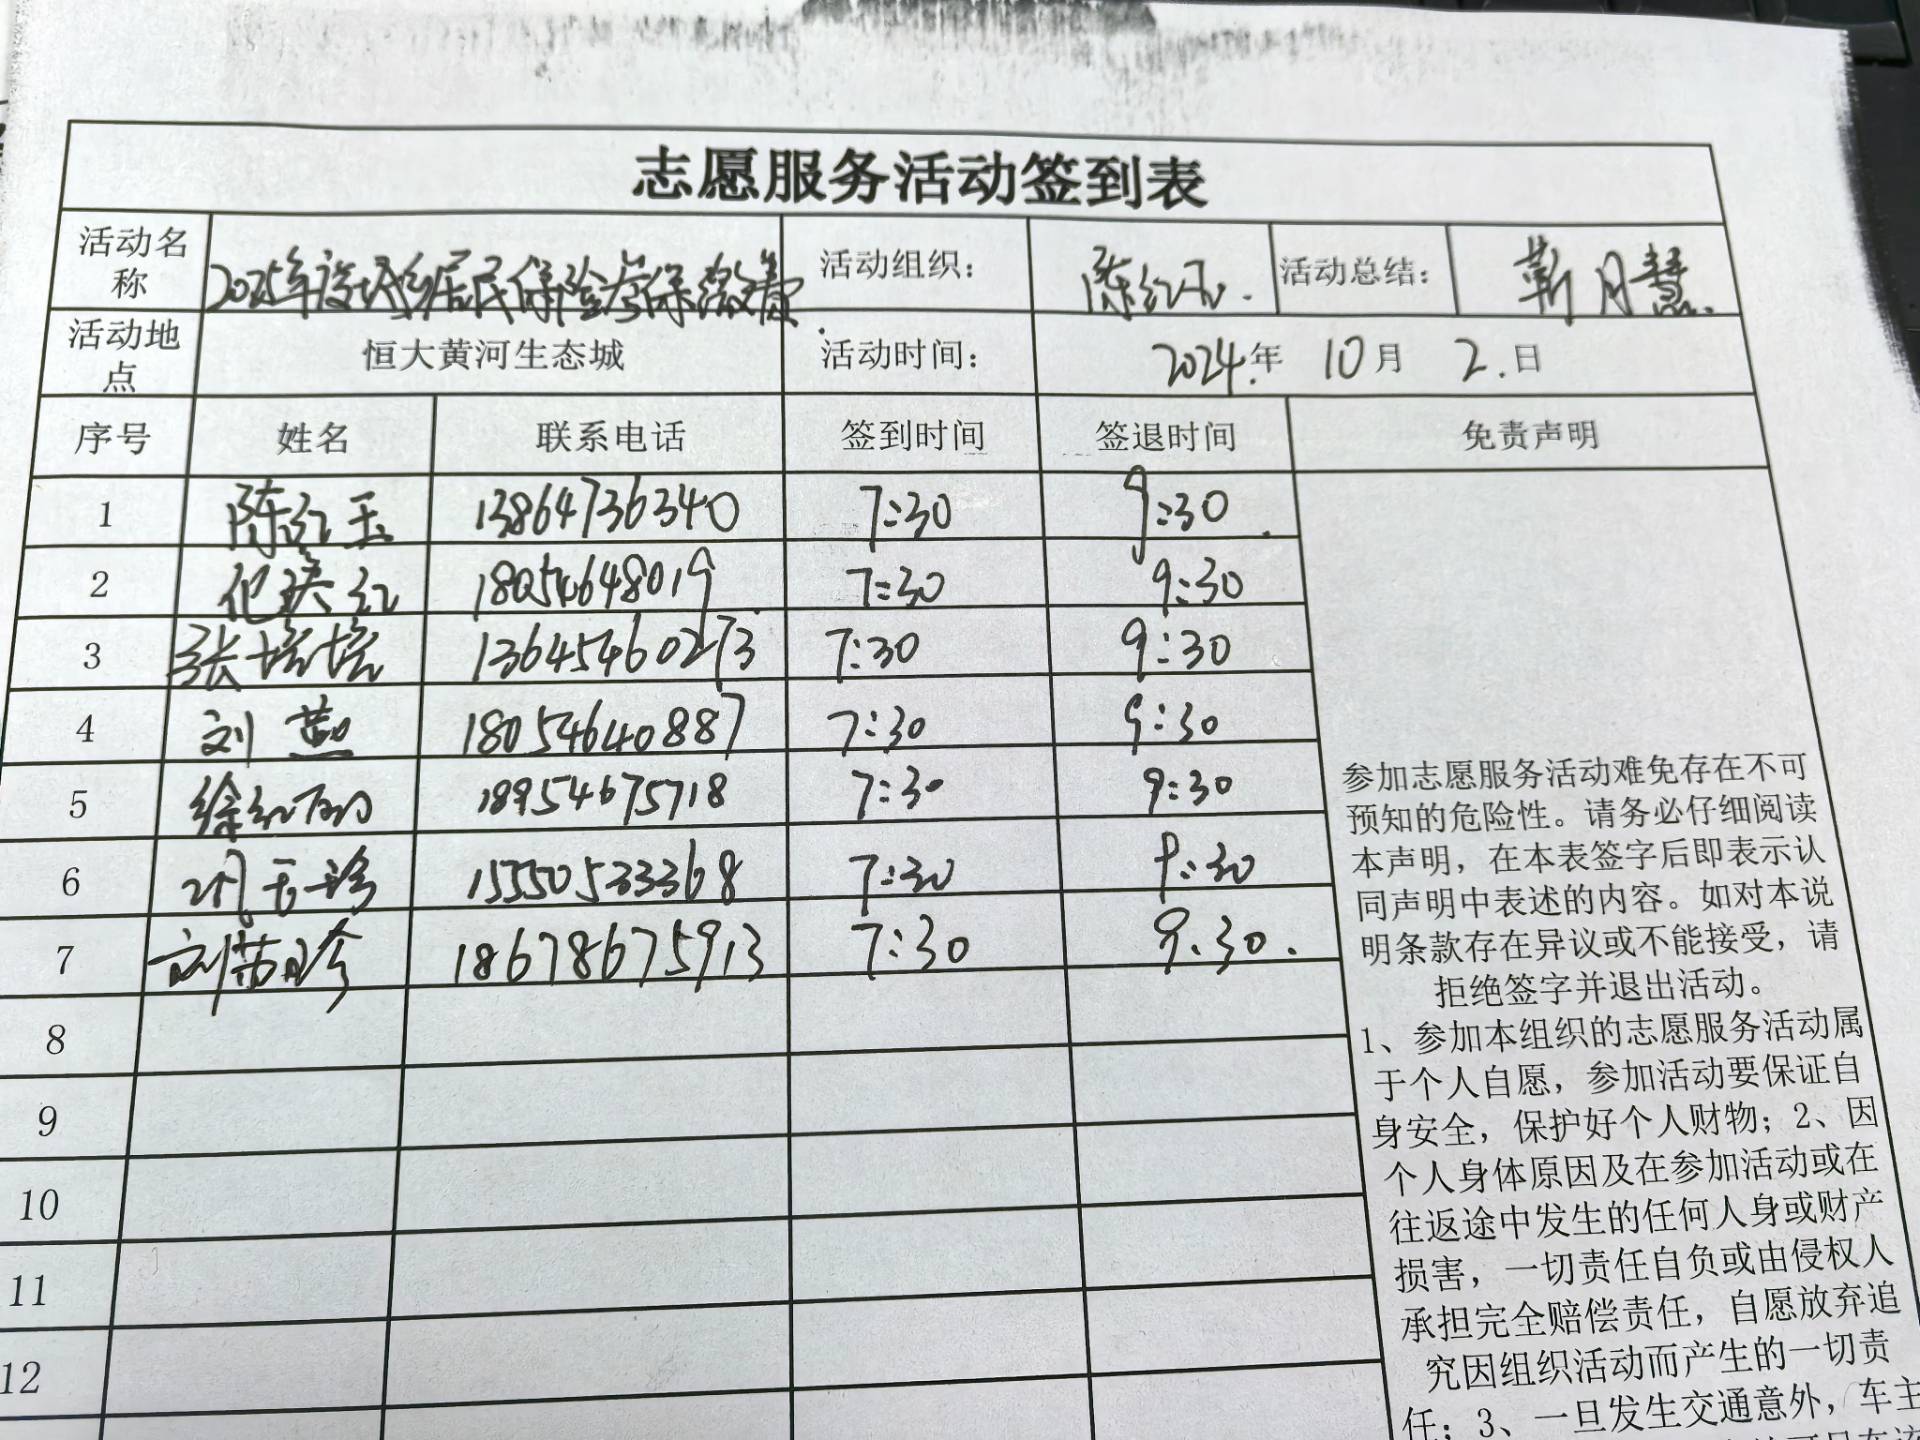 志愿服务活动签到表
活动名称 2025年度城乡居民保险参保缴费 活动组织： 陈红玉. 活动总结： 靳月慧.
活动地点 恒大黄河生态城 活动时间： 2024.年 10月 2.日
序号 姓名 联系电话 签到时间 签退时间 免责声明
1 陈红玉 13864736340 7:30 9:30
2 红 18054648019 7:30 9:30
3 张培培 13645460273 7:30 9:30
4 刘燕 18054640887 7:30 9:30
5 徐红 18954675718 7:30 9:30
6 玉珍 15550533368 7:30 9:30
7 刘 18678675913 7:30 9.30.
8
9
10
11
12
参加志愿服务活动难免存在不可
预知的危险性。请务必仔细阅读
本声明，在本表签字后即表示认
同声明中表述的内容。如对本说
明条款存在异议或不能接受，请
拒绝签字并退出活动。
1、参加本组织的志愿服务活动属
于个人自愿，参加活动要保证自
身安全，保护好个人财物；2、因
个人身体原因及在参加活动或在
往返途中发生的任何人身或财产
损害，一切责任自负或由侵权人
承担完全赔偿责任，自愿放弃追
究因组织活动而产生的一切责
任；3、一旦发生交通意外，车主